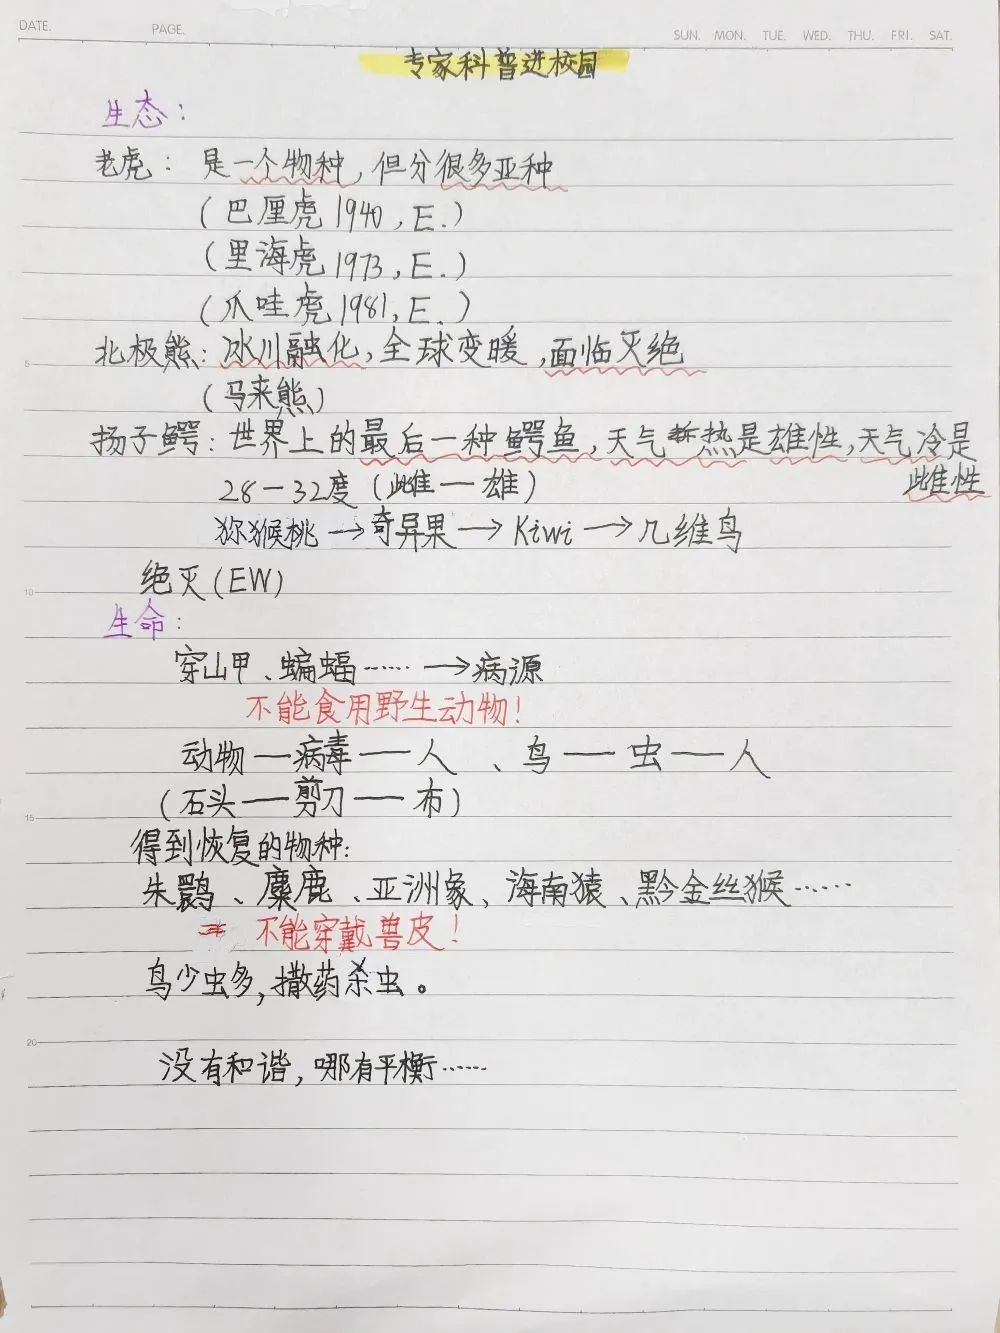 DATE. PAGE. SUN. MON. TUE. WED. THU. FRI. SAT.
专家科普进校园
生态：
老虎：是一个物种，但分很多亚种
（巴厘虎1940，E.）
（里海虎1973，E.）
（爪哇虎1981，E.）
5
北极熊：冰川融化，全球变暖，面临灭绝
（马来熊）
扬子鳄：世界上的最后一种鳄鱼，天气热是雄性，天气冷是
雌性
28—32度（雌—雄）
猕猴桃→奇异果→Kiwi→几维鸟
10
绝灭（EW）
生命：
穿山甲、蝙蝠……→病源
不能食用野生动物！
动物—病毒—人、鸟—虫—人
15
（石头—剪刀—布）
得到恢复的物种：
朱鹮、麋鹿、亚洲象、海南猿、黔金丝猴……
不能穿戴兽皮！
鸟少虫多，撒药杀虫。
20
没有和谐，哪有平衡……